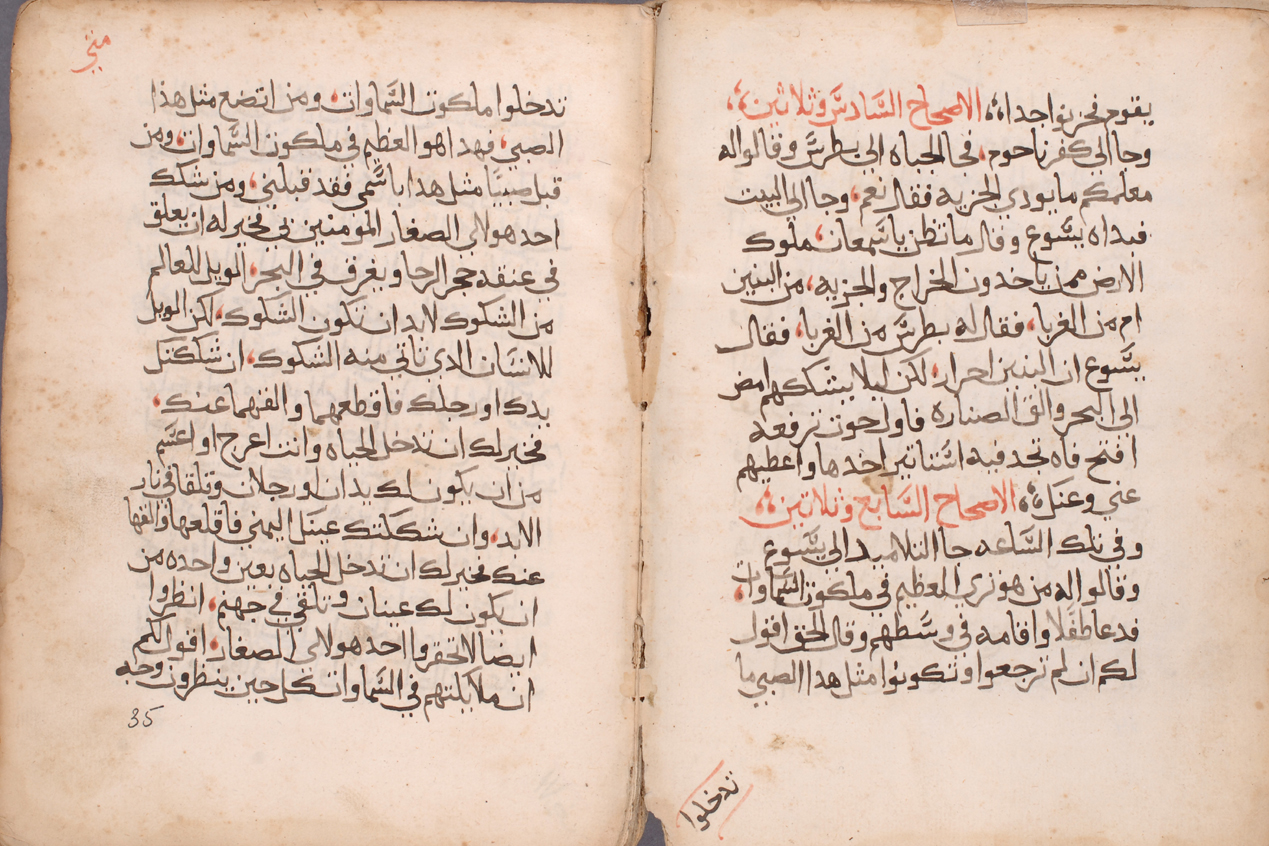 يقوم فحزنوا جدا ⁘ الاصحاح السادس وثلاثين ⁘
وجا الي كفرناحوم، فجا الجباه الي بطرس وقالوا له
معلمكم ما يودي الجزيه فقال نعم، وجا الى البيت
فبداه يسوع وقال ما تظن يا سمعان، ملوك
الارض ممن ياخدون الخراج والجزيه، من البنين
ام من الغربا، فقال له بطرس من الغربا، فقال
يسوع ان البنين احرار، لكن ليلا يشككهم امض
الى البحر والق الصناره فاول حوت ترفعه
افتح فاه تجد فيه استاتير اخدها واعطيهم
عني وعنك ⁘ الاصحاح السابع وثلاتين ⁘
وفي تلك الساعه جا التلاميد الي يسوع
وقالوا له من هو تري العظيم في ملكوت السماوات،
فدعا طفلا واقامه في وسطهم وقال الحق اقول
لكم ان لم ترجعوا وتكونوا مثل هدا الصبي ما
تدخلوا
متي
تدخلوا ملكوت السماوات، ومن اتضع مثل هذا
الصبي، فهدا هو العظيم في ملكوت السماوات، ومن
قبل صبيا مثل هدا باسمي فقد قبلني، ومن شكك
احد هولاي الصغار المومنين بي فخير له ان يعلق
في عنقه حجر الرحا ويغرق في البحر، الويل للعالم
من الشكوك لابد ان تكون الشكوك، لكن الويل
للانسان الدي تاتي منه الشكوك، ان شككتك
يدك او رجلك فاقطعهما والقهما عنك،
فخير لك ان تدخل الحياه وانت اعرج او اعسم
من ان يكون لك يدان او رجلان وتلقا في نار
الابد، وان شككتك عينك اليمني فاقلعها والقها
عنك فخير لك ان تدخل الحياه بعين واحده من
ان يكون لك عينان وتلقي في جهنم، انظروا
ايضا لا تحقروا احد هولاي الصغار، اقول لكم
ان ملايكتهم في السماوات كل حين ينظرون وجه
35